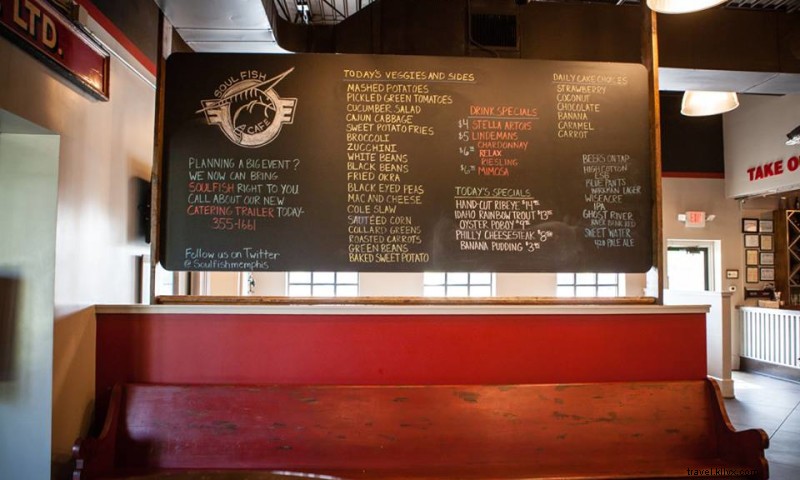 LTD.
SOUL FISH
CAFE
PLANNING A BIG EVENT?
WE NOW CAN BRING
SOULFISH RIGHT TO YOU.
CALL ABOUT OUR NEW
CATERING TRAILER TODAY-
355-1661
Follow us on Twitter
@Soulfishmemphis
TODAY'S VEGGIES AND SIDES
MASHED POTATOES
PICKLED GREEN TOMATOES
CUCUMBER SALAD
CAJUN CABBAGE
SWEET POTATO FRIES
BROCCOLI
ZUCCHINI
WHITE BEANS
BLACK BEANS
FRIED OKRA
BLACK EYED PEAS
MAC AND CHEESE
COLE SLAW
SAUTÉED CORN
COLLARD GREENS
ROASTED CARROTS
GREEN BEANS
BAKED SWEET POTATO
DRINK SPECIALS
$4 STELLA ARTOIS
$5 LINDEMANS
CHARDONNAY
RELAX
RIESLING
MIMOSA
TODAY'S SPECIALS
HAND-CUT RIBEYE
IDAHO RAINBOW TROUT
OYSTER POBOY
PHILLY CHEESESTEAK
BANANA PUDDING
DAILY CAKE CHOICES
STRAWBERRY
COCONUT
CHOCOLATE
BANANA
CARAMEL
CARROT
BEERS ON TAP
HIGH COTTON
ESB
LAGER
WISEACRE
IPA
GHOST RIVER
SWEET WATER
PALE ALE
EXIT
TAKE O
travel.kliv.com